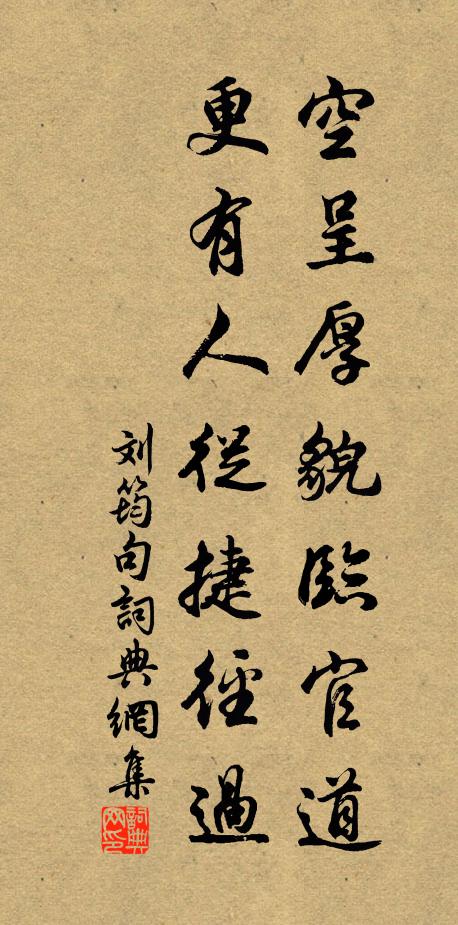 空呈厚貌臨官道
更有人從捷徑過
刘筠句詞典網集
詞典网印